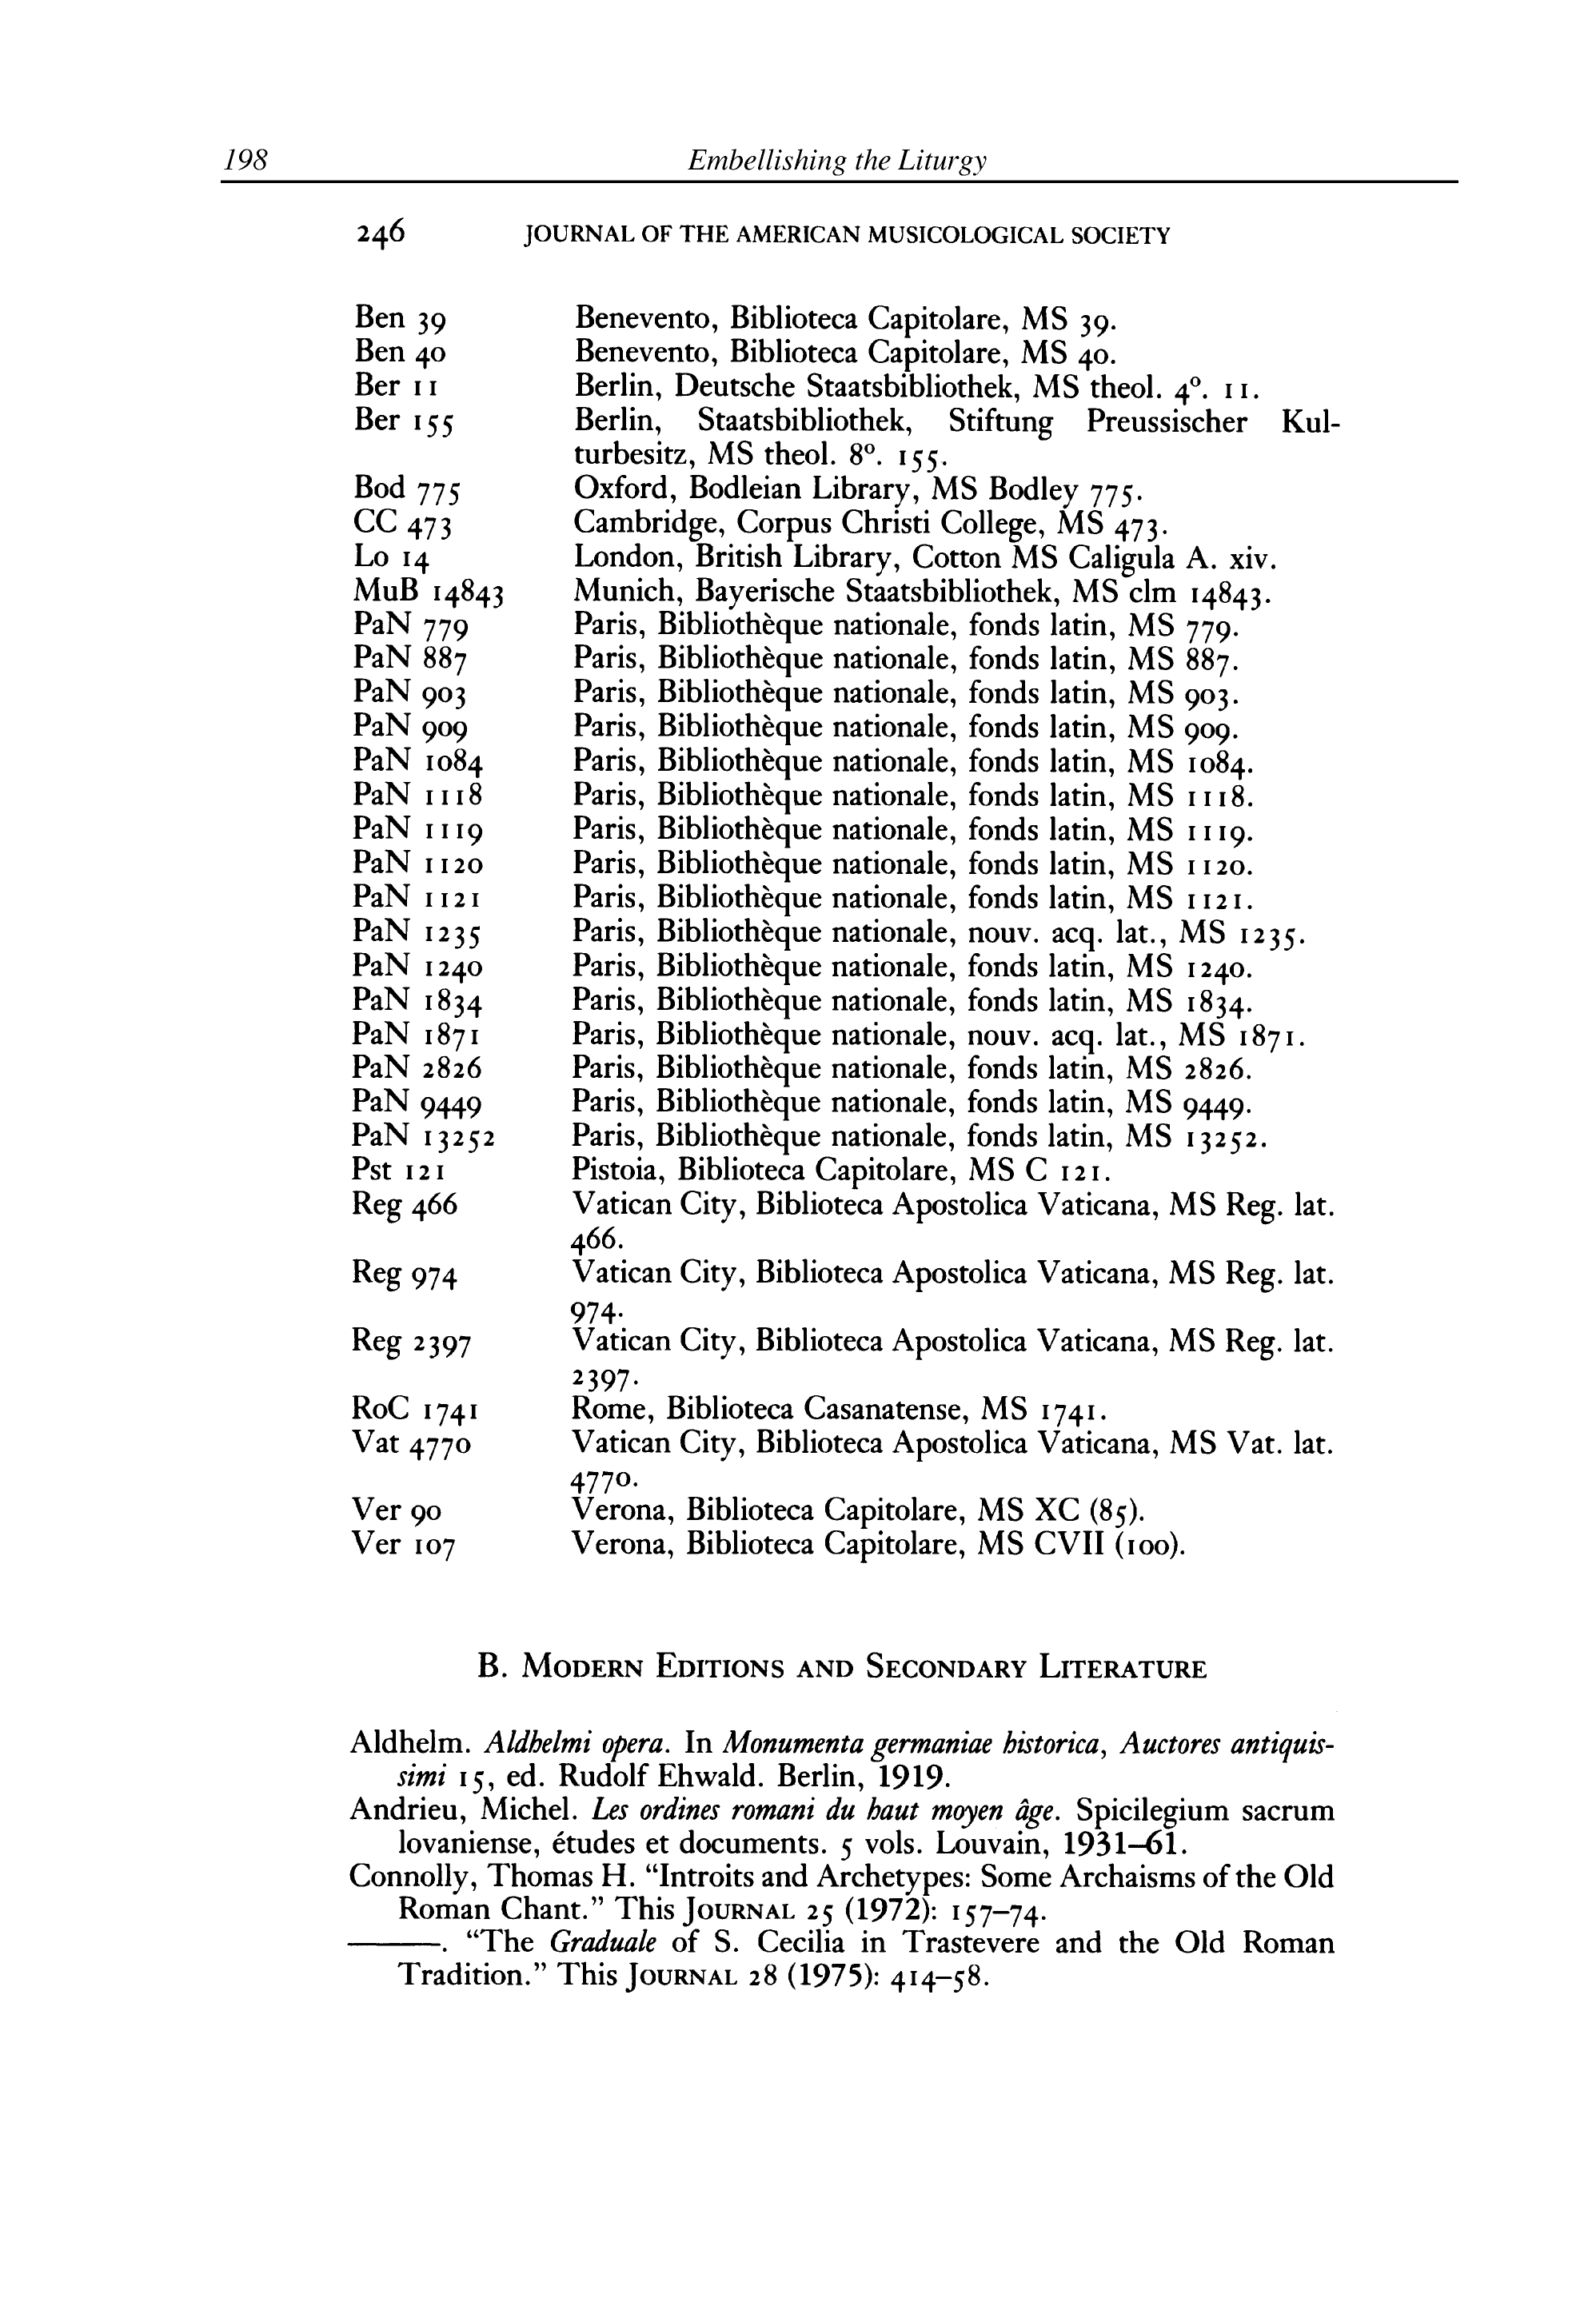 198 Embellishing the Liturgy
246 JOURNAL OF THE AMERICAN MUSICOLOGICAL SOCIETY
Ben 39 Benevento, Biblioteca Capitolare, MS 39.
Ben 40 Benevento, Biblioteca Capitolare, MS 40.
Ber 11 Berlin, Deutsche Staatsbibliothek, MS theol. 4º. 11.
Ber 155 Berlin, Staatsbibliothek, Stiftung Preussischer Kul-
turbesitz, MS theol. 8º. 155.
Bod 775 Oxford, Bodleian Library, MS Bodley 775.
CC 473 Cambridge, Corpus Christi College, MS 473.
Lo 14 London, British Library, Cotton MS Caligula A. xiv.
MuB 14843 Munich, Bayerische Staatsbibliothek, MS clm 14843.
PaN 779 Paris, Bibliothèque nationale, fonds latin, MS 779.
PaN 887 Paris, Bibliothèque nationale, fonds latin, MS 887.
PaN 903 Paris, Bibliothèque nationale, fonds latin, MS 903.
PaN 909 Paris, Bibliothèque nationale, fonds latin, MS 909.
PaN 1084 Paris, Bibliothèque nationale, fonds latin, MS 1084.
PaN 1118 Paris, Bibliothèque nationale, fonds latin, MS 1118.
PaN 1119 Paris, Bibliothèque nationale, fonds latin, MS 1119.
PaN 1120 Paris, Bibliothèque nationale, fonds latin, MS 1120.
PaN 1121 Paris, Bibliothèque nationale, fonds latin, MS 1121.
PaN 1235 Paris, Bibliothèque nationale, nouv. acq. lat., MS 1235.
PaN 1240 Paris, Bibliothèque nationale, fonds latin, MS 1240.
PaN 1834 Paris, Bibliothèque nationale, fonds latin, MS 1834.
PaN 1871 Paris, Bibliothèque nationale, nouv. acq. lat., MS 1871.
PaN 2826 Paris, Bibliothèque nationale, fonds latin, MS 2826.
PaN 9449 Paris, Bibliothèque nationale, fonds latin, MS 9449.
PaN 13252 Paris, Bibliothèque nationale, fonds latin, MS 13252.
Pst 121 Pistoia, Biblioteca Capitolare, MS C 121.
Reg 466 Vatican City, Biblioteca Apostolica Vaticana, MS Reg. lat.
466.
Reg 974 Vatican City, Biblioteca Apostolica Vaticana, MS Reg. lat.
974.
Reg 2397 Vatican City, Biblioteca Apostolica Vaticana, MS Reg. lat.
2397.
RoC 1741 Rome, Biblioteca Casanatense, MS 1741.
Vat 4770 Vatican City, Biblioteca Apostolica Vaticana, MS Vat. lat.
4770.
Ver 90 Verona, Biblioteca Capitolare, MS XC (85).
Ver 107 Verona, Biblioteca Capitolare, MS CVII (100).
B. MODERN EDITIONS AND SECONDARY LITERATURE
Aldhelm. Aldhelmi opera. In Monumenta germaniae historica, Auctores antiquis-
simi 15, ed. Rudolf Ehwald. Berlin, 1919.
Andrieu, Michel. Les ordines romani du haut moyen âge. Spicilegium sacrum
lovaniense, études et documents. 5 vols. Louvain, 1931–61.
Connolly, Thomas H. “Introits and Archetypes: Some Archaisms of the Old
Roman Chant.” This JOURNAL 25 (1972): 157–74.
———. “The Graduale of S. Cecilia in Trastevere and the Old Roman
Tradition.” This JOURNAL 28 (1975): 414–58.